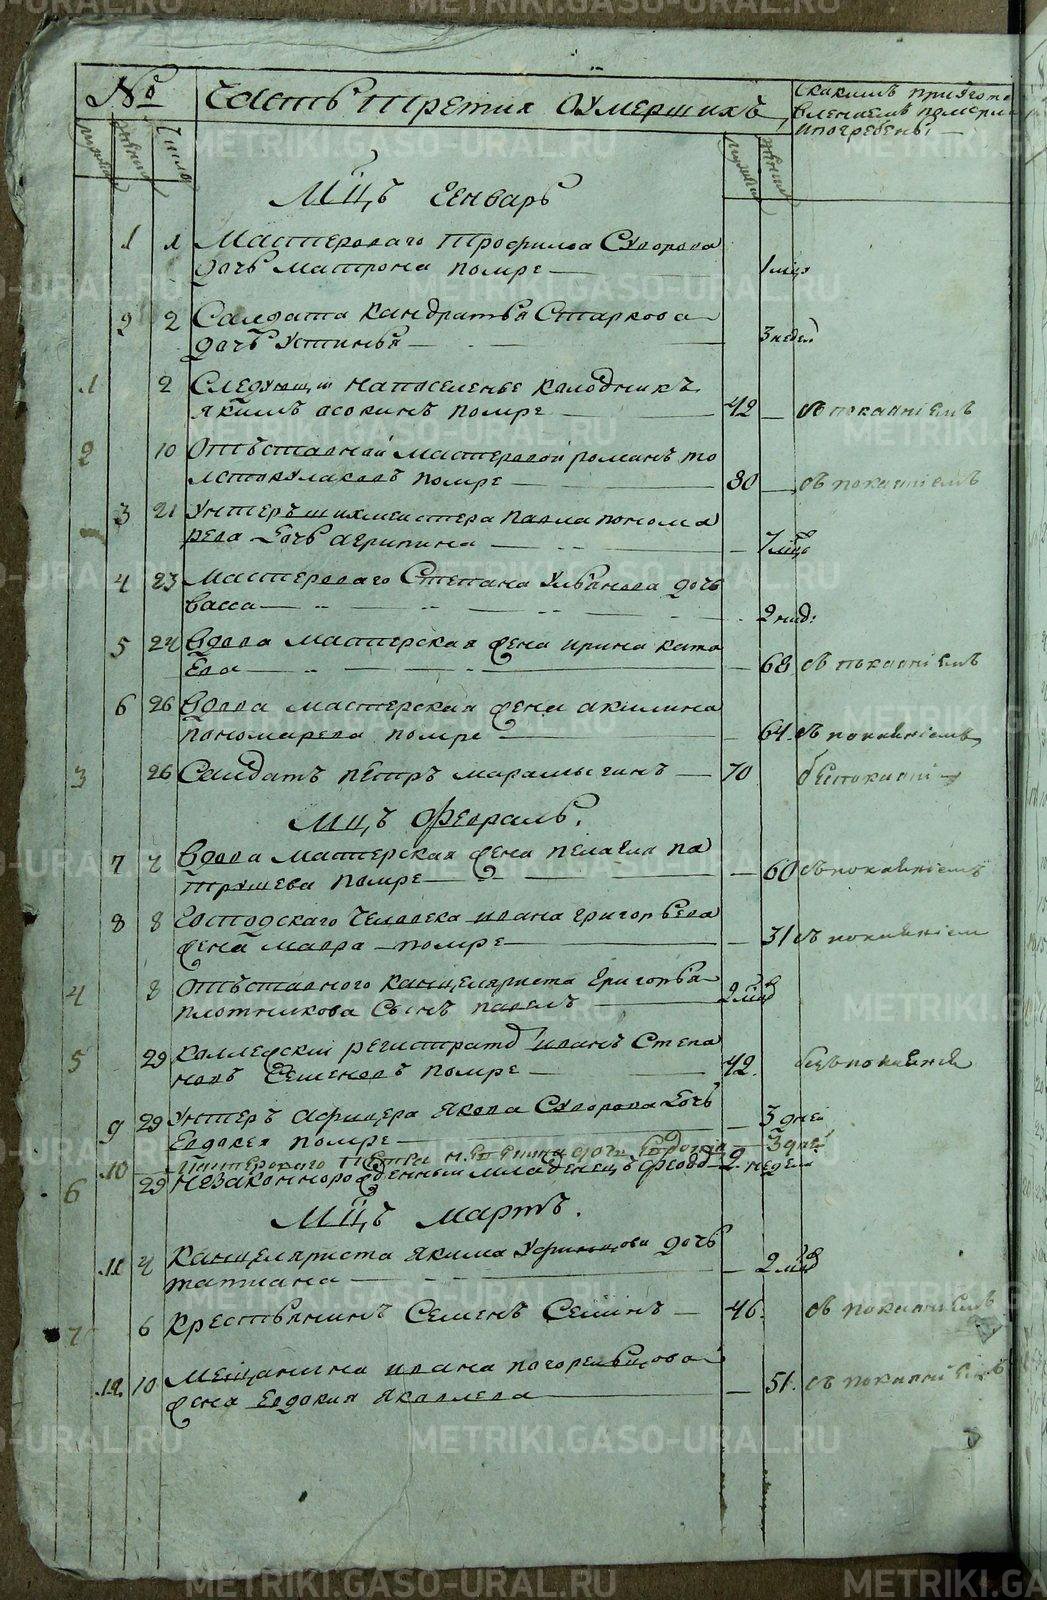 № Часть третия оумершихъ
скакимъ приугото
влениемъ померли
ипогребены
мужеска
женска
числа
мужеска
женска
Мцъ Генварь
1 1 Мастероваго трофима Суворова
дочь матрона помре 1 мцъ
2 2 Салдата кандратья Старкова
дочь устинья 3 недел
1 2 Следующи напоселенье колодникъ
якимъ осокинъ помре 42 съ покаяніемъ
2 10 Отъставной мастеровой романъ то
лстокулаковъ помре 80 съ покаяніемъ
3 21 Унтеръ шихмейстера павла понома
рева дочь агрипина 7 мцъ
4 23 Мастероваго Степана Ульянова дочь
васса 2 нид:
5 24 вдова мастерская жена ирина като
ева 68 съ покаяніемъ
6 26 вдова мастерская жена акилина
пономарева помре 64. съ покаяніемъ
3 26 Салдатъ петръ марамыгинъ 70 безпокаяні
Мцъ Февраль.
7 2 вдова мастерская жена пелагея па
трушева помре 60 съ покаяніемъ
8 8 Господскаго человека ивана григорьева
жена мавра помре 31 съ покаяніем
4 8 отъставного канцеляриста григорья
плотникова Сынъ павелъ 2 мцов
5 29 каллежскій регистрато иванъ Степа
новъ Семеновъ помре 42. безпокаянія
9 29 Унтеръ афицера якова Суворова дочь
Евдокея помре 3 дней
10 дочь Евдокея 3 дней
6 29 незаконнорожденный младенецъ федо 2 недели
Мцъ Мартъ.
11 4 Канцеляриста якима дочь
татиана 2 мцов
7 6 крестьянинъ Семенъ Семинъ 46. съ покаяніемъ
12 10 мещанина ивана погорельцова
жена Евдокия яковлева 51. съ покаяніемъ
METRIKI.GASO-URAL.RU